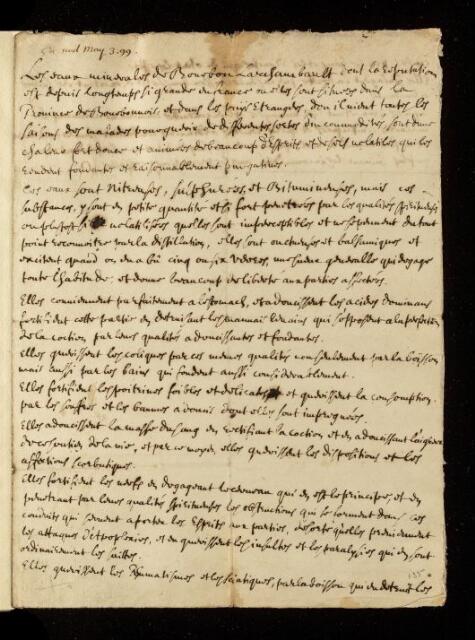 red May. 3. 99.
Les eaux minerales de Bourbon Larchambault dont la reputation
est depuis longtemps si grande en france ou elles sont situees dans la
Province de Bourbonnois, et dans les païs Etrangers, d'ou il vient toutes les
saisons des malades pour guerir de differentes sortes d'incommoditez, sont d'une
chaleur fort douce et animées de beaucoup d'Esprits et de sels volatiles, qui les
rendent fondantes et raisonnablement purgatives.
Ces eaux sont Nitreuses, sulphurées, et Bitumineuses, mais ces
substances, y sont en petite quantité et si fort penetrées par les qualités spiritueuses
ou plustost si volatilisées quelles sont imperceptibles et ne se peuvent du tout
point reconnoitre par la distillation, elles sont onctueuses et balsamiques et
excitent quand on en a bû cinq ou six verres une sueur generalle qui degage
toute l'habitude, et donne beaucoup de liberté aux parties affectées.
Elles conviennent parfaitement a l'estomach, et adoucissent les acides dominans
fortifient cette partie en detruisant les mauvais levains qui s'opposent a la perfection
de la coction par leurs qualités adoucissantes et fondantes.
Elles guerissent les coliques par ces memes qualités non seulement par la boisson
mais aussi par les bains qui fondent aussi considerablement.
Elles fortifient les poitrines foibles et delicates et guerissent la consomption
par les souffres et les baumes adoucis dont elles sont impregnées.
Elles adoucissent la masse du sang en rectifiant la coction et en adoucissant l'aigreur
de ce soutien de la vie, et par ce moyen, elles guerissent les dispositions et les
affections scorbutiques.
Elles fortifient les nerfs en degageant le cerveau qui en est le principe, et en
penetrant par leurs qualités spiritueuses les obstructions qui se forment dans les
conduits qui servent a porter les Esprits aux parties, de sorte quelles previennent
les attaques d'Apoplexies, et en guerissent les insultes et les paralysies qui en sont
ordinairement les suittes.
Elles guerissent les Rhumatismes et les sciatiques, par la boisson qui en detruit les